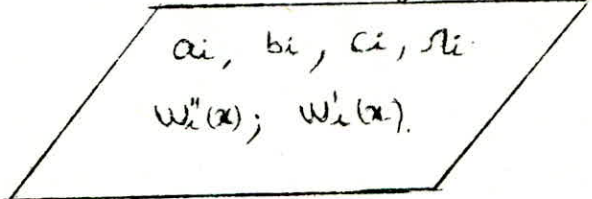 ai, bi, ci, λi
Wi"(x); Wi'(x).